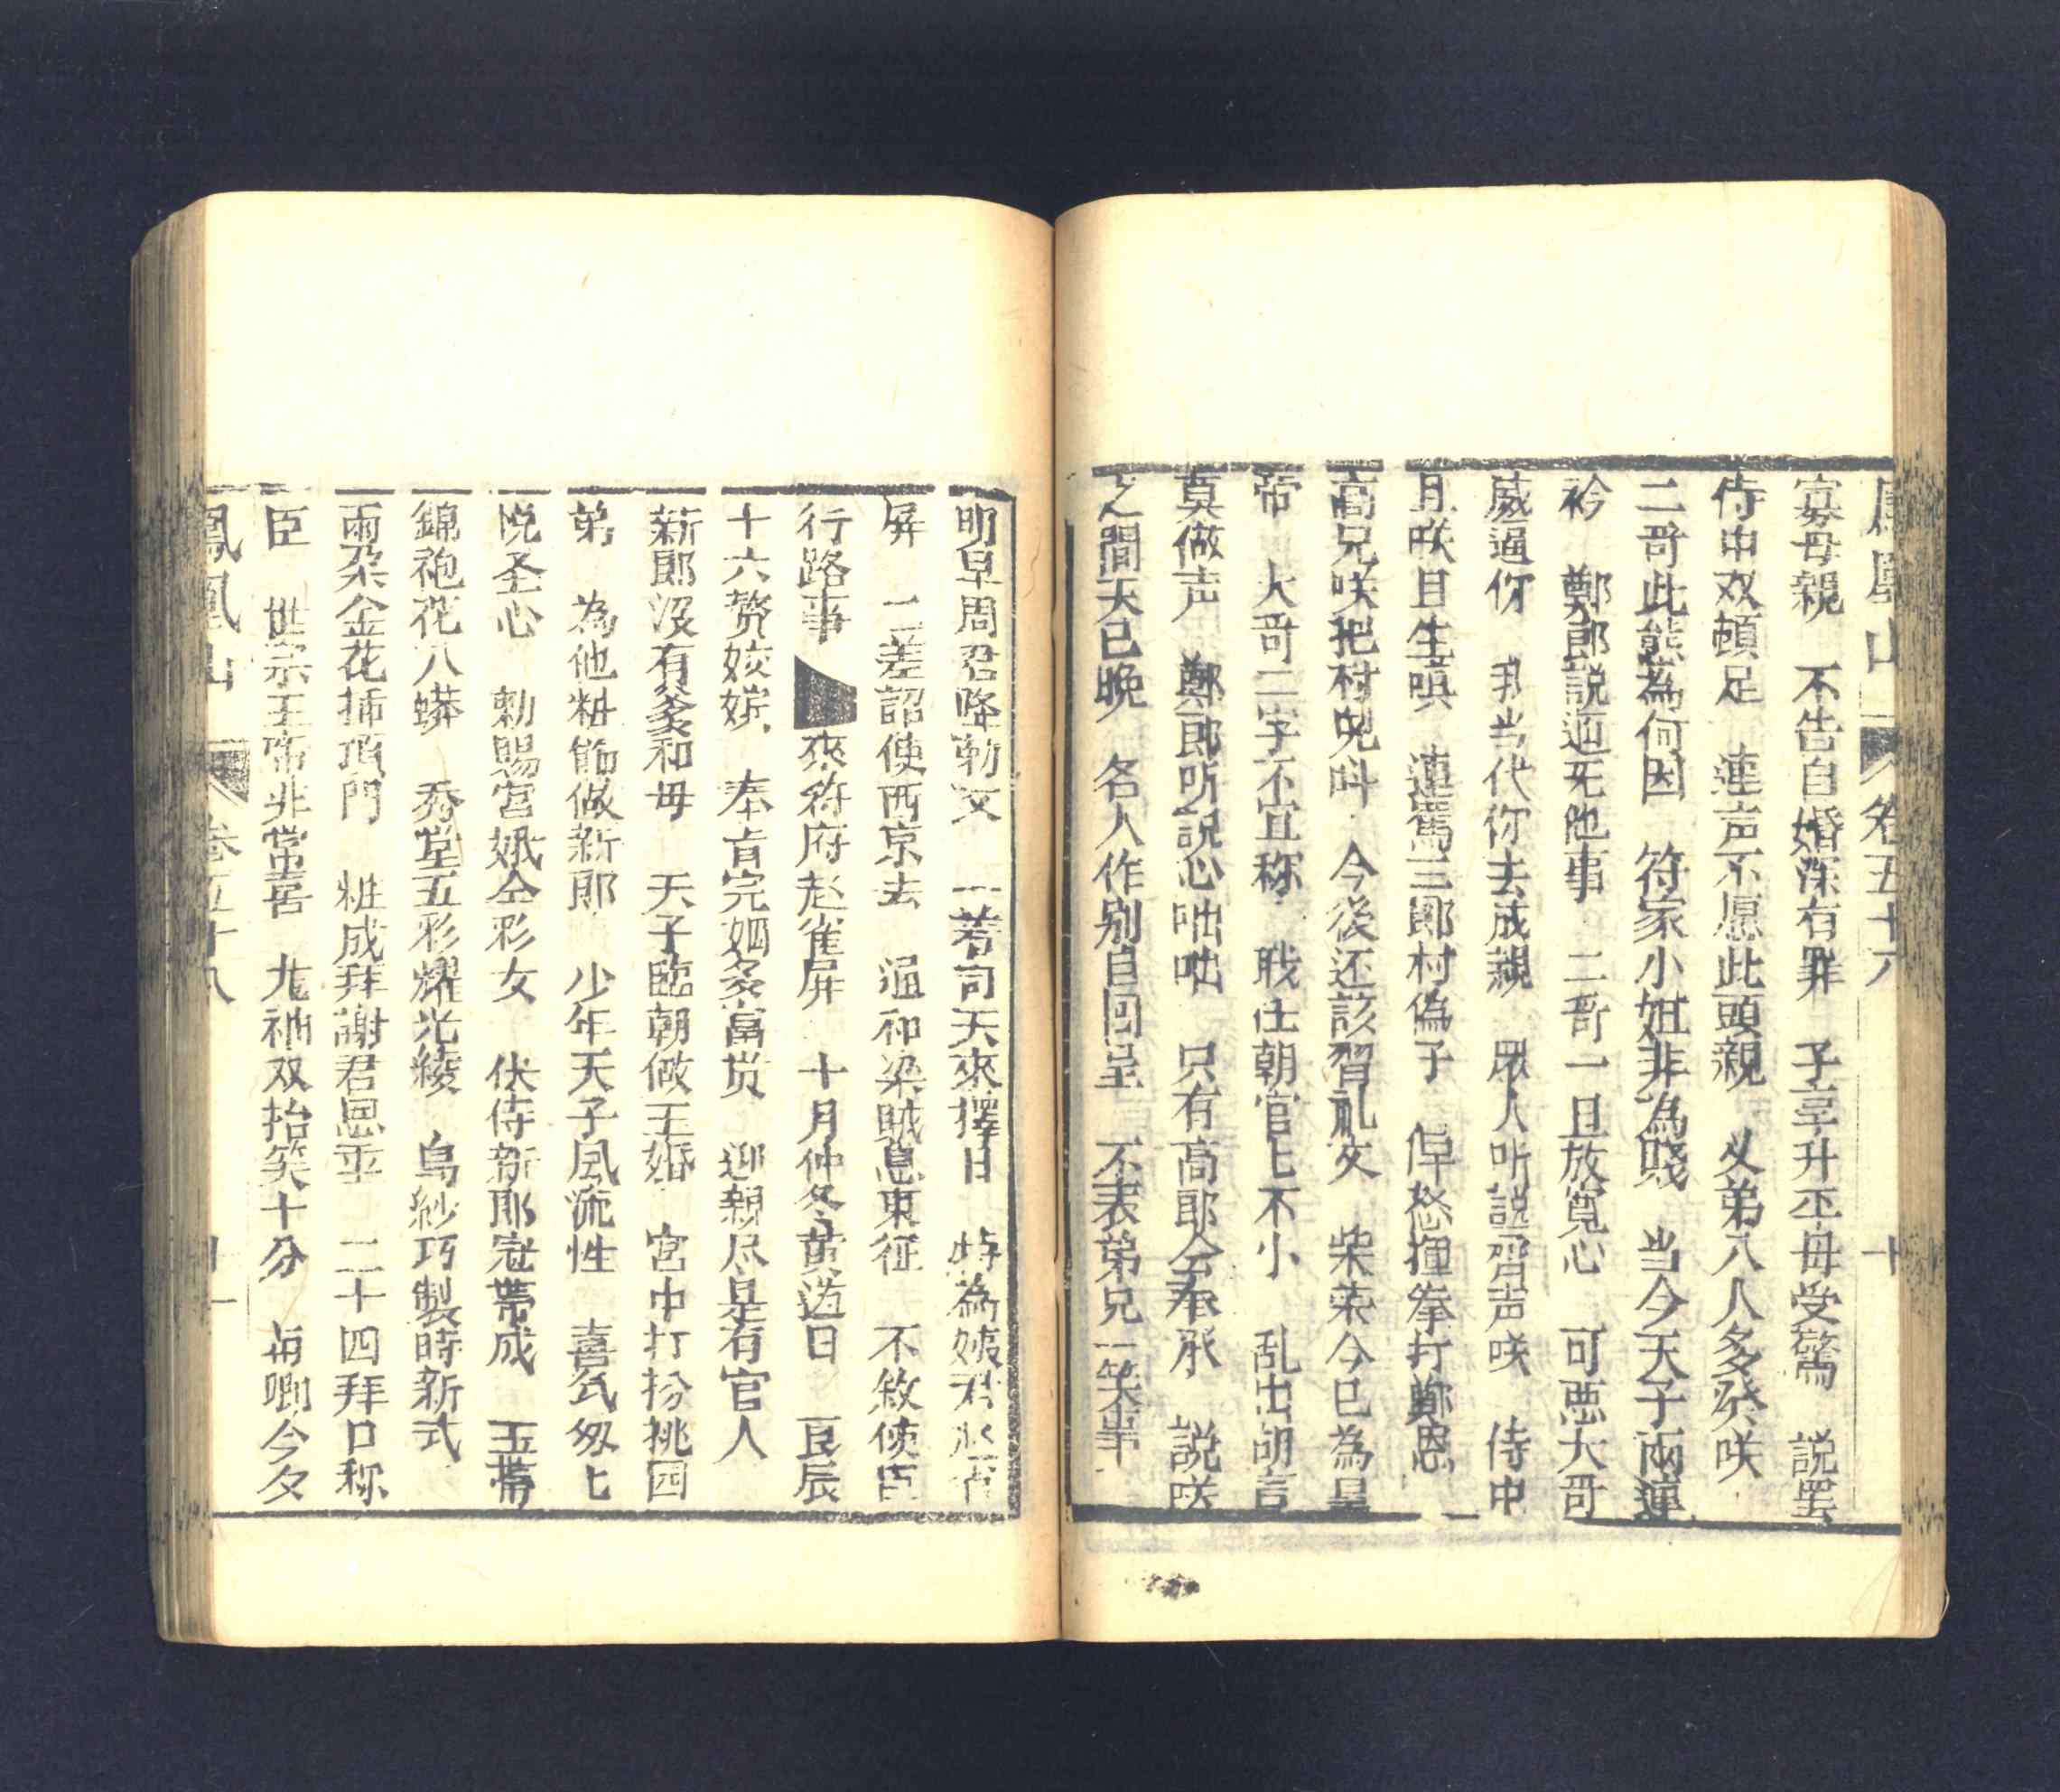 鳳凰山 卷五十六 十
寡母親 不告自婚深有罪 子享升丕母受驚 説罢
侍中双頓足 連声不愿此頭親 义弟八人多癸咲
二哥此態為何因 符家小姐非為賤 当今天子兩連
衿 鄭郎説迎死他事 二哥一旦放寬心 可悪大哥
威逼你 我当代你去成親 眾人听説齊声咲 侍中
且咲且生嗔 連罵三郎村偽子 佯怒揮拳打鄭恩
高兄咲把村兇呌 今後还該習礼文 柴荣今已為皇
帝 大哥二字不宜称 戝仕朝官七不小 乱出胡言
莫做声 鄭郎听説心咄咄 只有高郎会奉承 説咲
之間天已晚 名人作别自回呈 不表弟兄一笑半
明早周君降勅文 一着司天來擇日 特為姨君
屏 二差詔使西京去 逥和梁贼息東征 不敘使臣
行路事 來符府赵雀屏 十月仲冬黄道日 良辰
十六贅姣嫔 奉肯完姻多富贵 迎親尽是有官人
新郎没有爹和毋 天子臨朝做王婚 宮中打扮挑园
弟 為他粧餙做新郎 少年天子風流性 喜気匆七
悦圣心 勅賜宫娥仝彩女 伏侍新郎冠带成 玉帶
錦袍花八蟒 秀堂五彩耀光綾 烏紗巧製時新式
兩朶金花插項門 粧成拜謝君恩重 二十四拜口称
臣 世宗王帝非常喜 尨袖双抬笑十分 冉卿今夕
鳳凰山 卷五十八 十一